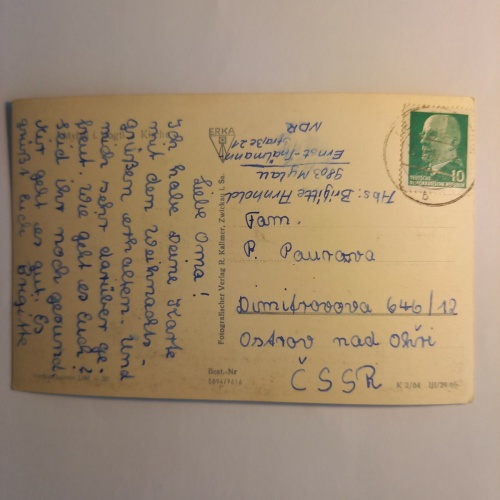 Liebe Oma!
Ich habe Deine Karte
mit dem Weihnachts-
grüßen erhalten und
mich sehr darüber ge-
freut. Wie geht es Euch?
Seid ihr noch gesund
Mir geht es gut. Es
grüßt Euch Brigitte
ERKA
Fotografischer Verlag R. Kallmer, Zwickau i. Sa.
Best.-Nr
Abs: Brigitte Arnhold
9803 Mylau
Ernst-Thälmann-
Straße 21
DDR
10
Fam.
P. Paurova
Dimitrovova 646/12
Ostrov nad Ohří
ČSSR